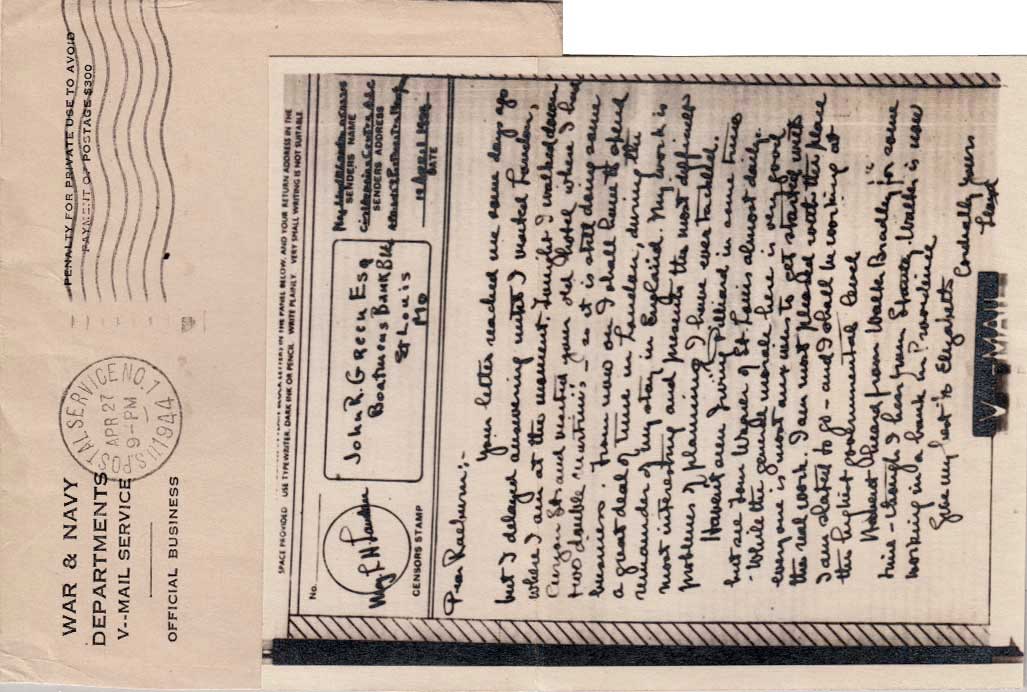 WAR & NAVY
DEPARTMENTS
V--MAIL SERVICE
OFFICIAL BUSINESS
U.S. POSTAL SERVICE NO. 1
APR 27
9-PM
1944
PENALTY FOR PRIVATE USE TO AVOID
PAYMENT OF POSTAGE $300
SPACE PROVIDED USE TYPEWRITER, DARK INK OR PENCIL. WRITE PLAINLY. VERY SMALL WRITING IS NOT SUITABLE.
No.
CENSORS STAMP
John R. Green Esq
Boatmens Bank Bld
St Louis
Mo
SENDERS NAME
SENDERS ADDRESS
DATE
Dear Raeburn:-
Your letter reached me some days ago
but I delayed answering until I visited London,
where I am at the moment. Tonight I walked down
Curzon St and visited your old hotel where I had
two double martinis - so it is still doing some
business. From now on I shall have to spend
a great deal of time in London, during the
remainder of my stay in England. My work is
most interesting and presents the most difficult
problems of planning I have ever tackled.
Havent seen Irving Hilliard in some time
but see Tom Wagner of St. Louis almost daily.
- While the general morale here is very good
every one is most anxious to get started with
the real work. I am most pleased with the place
I am slated to go - and I shall be working at
the highest governmental level
Havent heard from Walker Bradley for some
time - though I hear from Walker is now
working in a bank in Providence
Give my best to Elizabeth
Cordially Yours
Lloyd
V-MAIL